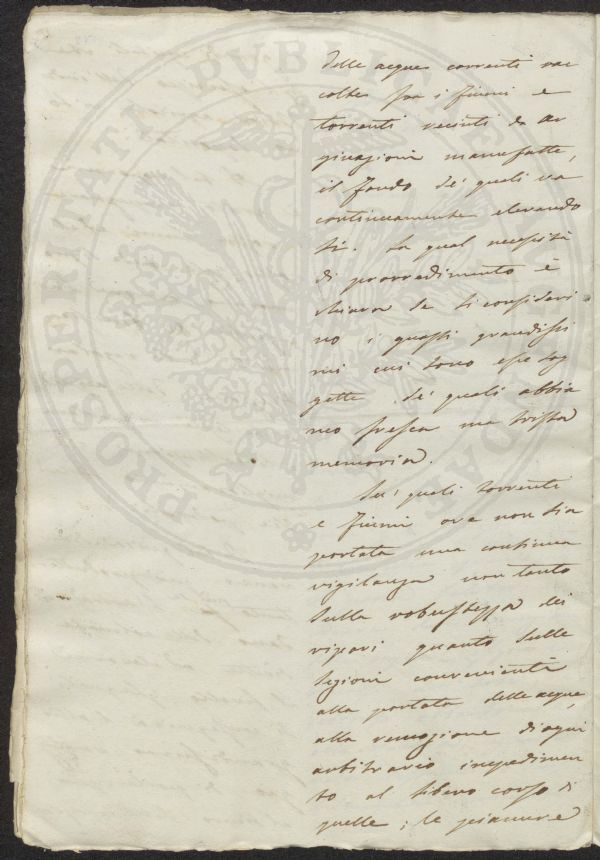 delle acque correnti rac
colte fra i fiumi e
torrenti recinti da ar
ginazioni manufatte,
il fondo de' quali va
continuamente elevando
si. La qual necessità
di provvedimento è
chiara se si consideri
no i guasti grandissi
mi cui sono esse sog
gette, de' quali abbia
mo fresca ma trista
memoria.
Su' quali torrenti
e fiumi ove non sia
portata una continua
vigilanza non tanto
sulla robustezza dei
ripari quanto sulle
sezioni convenienti
alla portata delle acque,
alla remozione di ogni
arbitrario impedimen
to al libero corso di
quelle; le pianure
PROSPERITATI PUBLICAE AUGENDAE